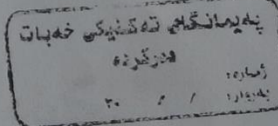 پەیمانگەی تەکنیکی خەبات
دەرکردە
ژمارە:
بەروار:    /    /    ٢٠